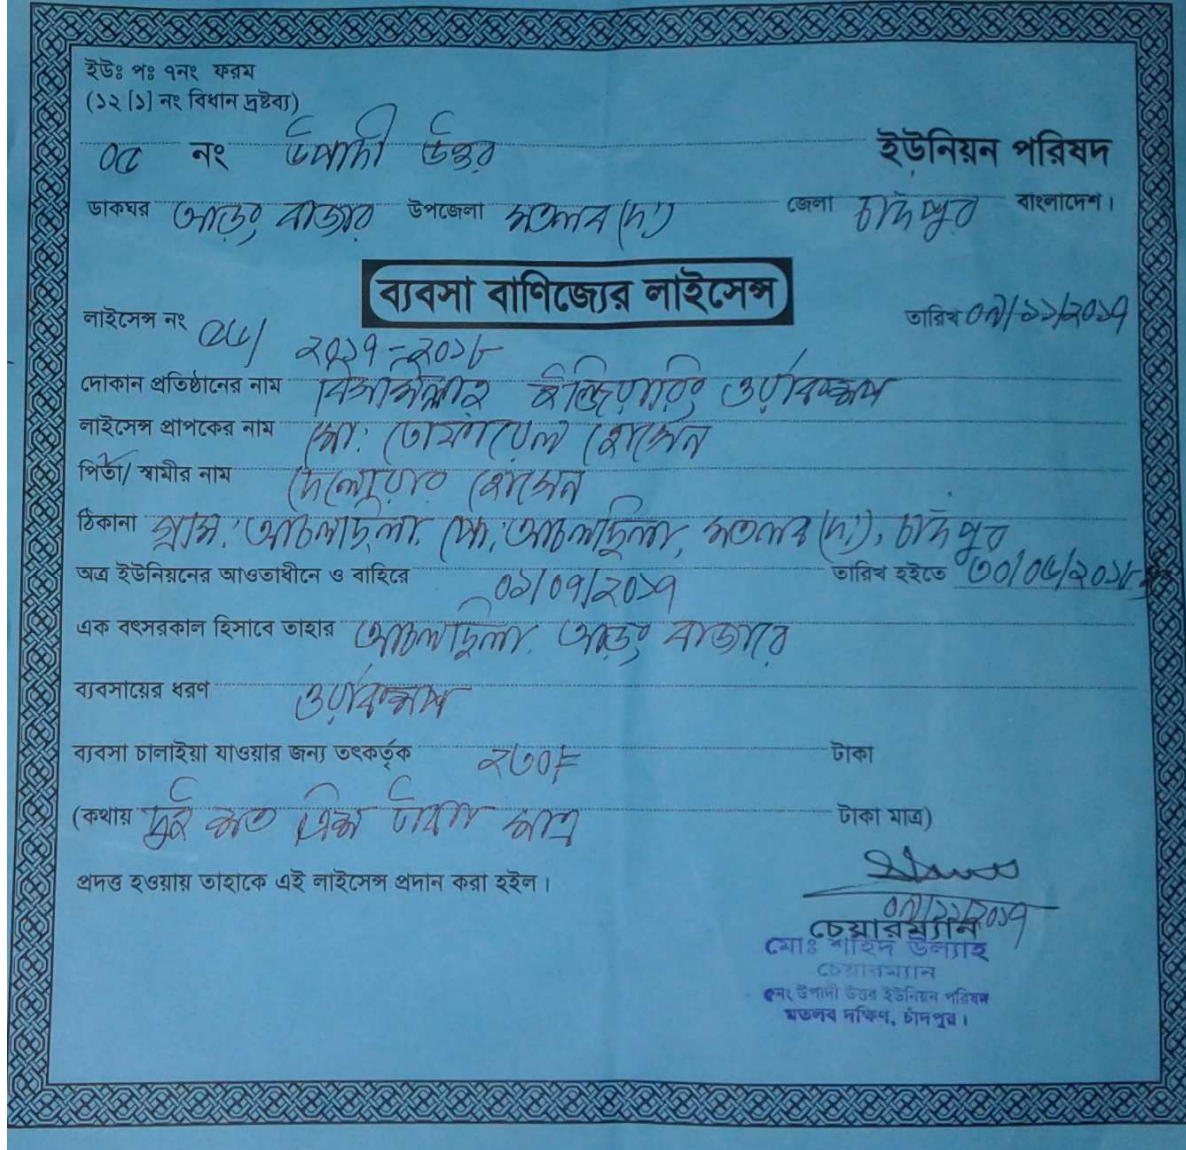 ইউঃ পঃ ৭নং ফরম
(১২ [১] নং বিধান দ্রষ্টব্য)
০৫ নং উপাদী উত্তর ইউনিয়ন পরিষদ
ডাকঘর আড়ং বাজার উপজেলা মতলব (দঃ) জেলা চাঁদপুর বাংলাদেশ।
ব্যবসা বাণিজ্যের লাইসেন্স
লাইসেন্স নং ২০১৭-২০১৮ তারিখ /১১/২০১৭
দোকান প্রতিষ্ঠানের নাম বিসমিল্লাহ ইঞ্জিয়ারিং ওয়ার্কসপ
লাইসেন্স প্রাপকের নাম মো: তোফায়েল হোসেন
পিতা/ স্বামীর নাম দেলোয়ার হোসেন
ঠিকানা গ্রাম: আচলছিলা, পো: আচলছিলা, মতলব (দঃ), চাঁদপুর
অত্র ইউনিয়নের আওতাধীনে ও বাহিরে ০১/০৭/২০১৭ তারিখ হইতে ৩০/০৬/২০১৮
এক বৎসরকাল হিসাবে তাহার আচলছিলা আড়ং বাজারে
ব্যবসায়ের ধরণ ওয়ার্কসপ
ব্যবসা চালাইয়া যাওয়ার জন্য তৎকর্তৃক ২৩০/= টাকা
(কথায় দুই শত ত্রিশ টাকা মাত্র টাকা মাত্র)
প্রদত্ত হওয়ায় তাহাকে এই লাইসেন্স প্রদান করা হইল।
/১১/২০১৭
চেয়ারম্যান
মোঃ শহিদ উল্যাহ
চেয়ারম্যান
৫নং উপাদী উত্তর ইউনিয়ন পরিষদ
মতলব দক্ষিণ, চাঁদপুর।